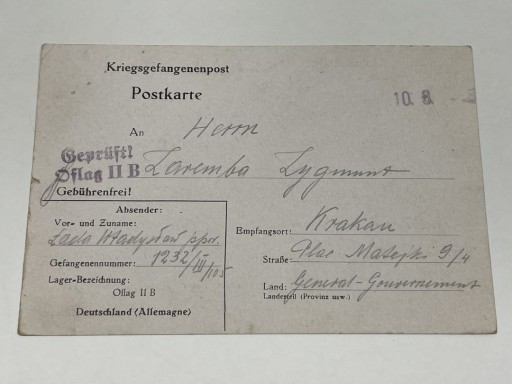 Kriegsgefangenenpost
Postkarte
10. 8.
An Herrn
Geprüft!
Oflag II B
Zaremba Zygmunt
Gebührenfrei!
Absender:
Vor- und Zuname:
Łada Władysław ppor.
Gefangenennummer: 1232/
Lager-Bezeichnung:
Oflag II B
Deutschland (Allemagne)
Empfangsort: Krakau
Straße: Plac Matejki 9/4
Land: General-Gouvernement
Landesteil (Provinz usw.)